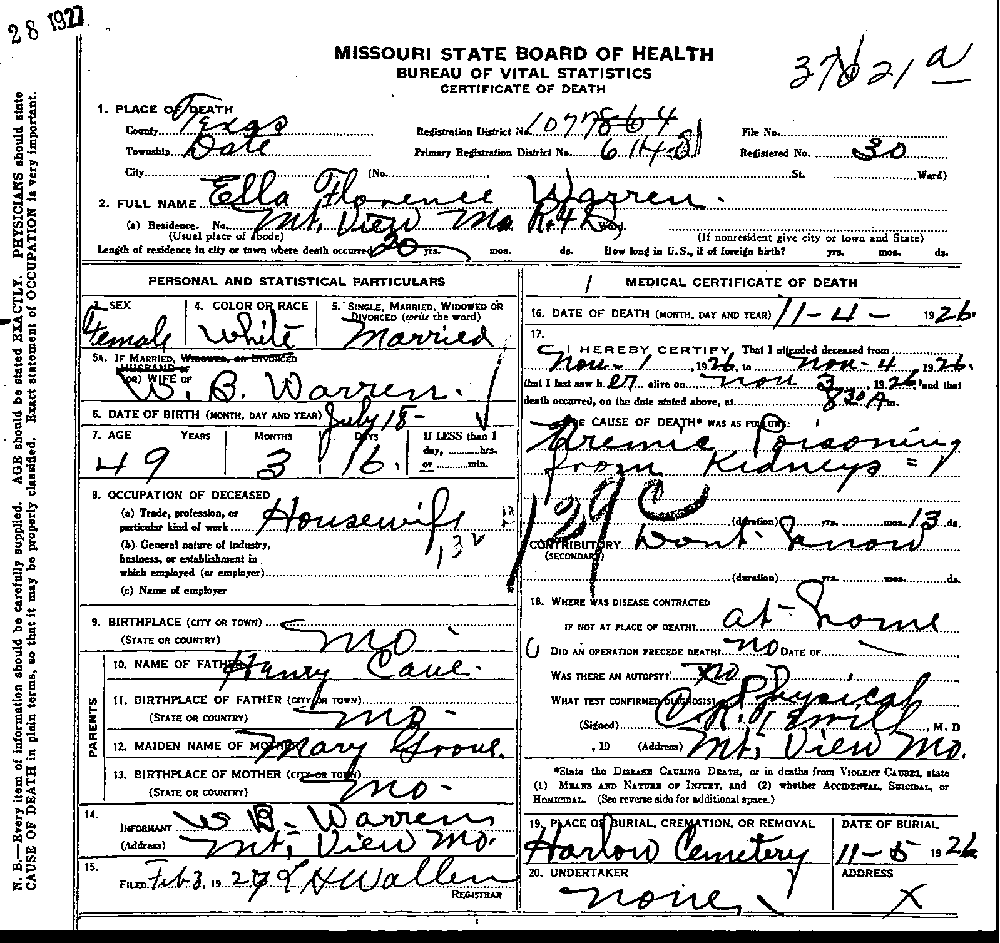 28 1927
MISSOURI STATE BOARD OF HEALTH
BUREAU OF VITAL STATISTICS
CERTIFICATE OF DEATH
37621 a
1. PLACE OF DEATH
County Texas Registration District No. 1077 864 File No.
Township Date Primary Registration District No. 6148 Registered No. 30
City (No. St. Ward)
2. FULL NAME Ella Florence Warren.
(a) Residence. No. Mt. View Mo. R. 4
(Usual place of abode) (If nonresident give city or town and State)
Length of residence in city or town where death occurred 20 yrs. mos. ds. How long in U.S., if of foreign birth? yrs. mos. ds.
PERSONAL AND STATISTICAL PARTICULARS
3. SEX 4. COLOR OR RACE 5. SINGLE, MARRIED, WIDOWED OR DIVORCED (write the word)
Female White Married
5A. IF MARRIED, WIDOWED, OR DIVORCED
HUSBAND OF
(OR) WIFE OF W. B. Warren.
6. DATE OF BIRTH (MONTH, DAY AND YEAR) July 18-
7. AGE YEARS MONTHS DAYS If LESS than 1 day, hrs. or min.
49 3 16.
8. OCCUPATION OF DECEASED
(a) Trade, profession, or
particular kind of work Housewife
(b) General nature of industry,
business, or establishment in
which employed (or employer)
(c) Name of employer
9. BIRTHPLACE (CITY OR TOWN)
(STATE OR COUNTRY) Mo -
PARENTS
10. NAME OF FATHER Henry Cave.
11. BIRTHPLACE OF FATHER (CITY OR TOWN)
(STATE OR COUNTRY) Mo -
12. MAIDEN NAME OF MOTHER Mary
13. BIRTHPLACE OF MOTHER (CITY OR TOWN)
(STATE OR COUNTRY) Mo -
14. INFORMANT W B. Warren
(Address) Mt. View Mo.
15. FILED Feb 3, 1927 Wallen
REGISTRAR
MEDICAL CERTIFICATE OF DEATH
16. DATE OF DEATH (MONTH, DAY AND YEAR) 11-4- 1926.
17.
I HEREBY CERTIFY, That I attended deceased from
Nov- 1, 1926, to Nov- 4, 1926.
that I last saw her alive on Nov 3, 1926, and that
death occurred, on the date stated above, at 8 30 A m.
THE CAUSE OF DEATH* WAS AS FOLLOWS:
Uremic Poisoning
from Kidneys
129 C
(duration) yrs. mos. 13 ds.
CONTRIBUTORY Dont Know
(SECONDARY)
(duration) yrs. mos. ds.
18. WHERE WAS DISEASE CONTRACTED
IF NOT AT PLACE OF DEATH? at Home
DID AN OPERATION PRECEDE DEATH? no DATE OF
WAS THERE AN AUTOPSY? no
WHAT TEST CONFIRMED DIAGNOSIS? Physical
(Signed) M. D
, 19 (Address) Mt. View Mo.
*State the DISEASE CAUSING DEATH, or in deaths from VIOLENT CAUSES, state
(1) MEANS AND NATURE OF INJURY, and (2) whether ACCIDENTAL, SUICIDAL, or
HOMICIDAL. (See reverse side for additional space.)
19. PLACE OF BURIAL, CREMATION, OR REMOVAL DATE OF BURIAL
Harlow Cemetery 11-5 1926
20. UNDERTAKER ADDRESS
none X
N. B.—Every item of information should be carefully supplied. AGE should be stated EXACTLY. PHYSICIANS should state
CAUSE OF DEATH in plain terms, so that it may be properly classified. Exact statement of OCCUPATION is very important.